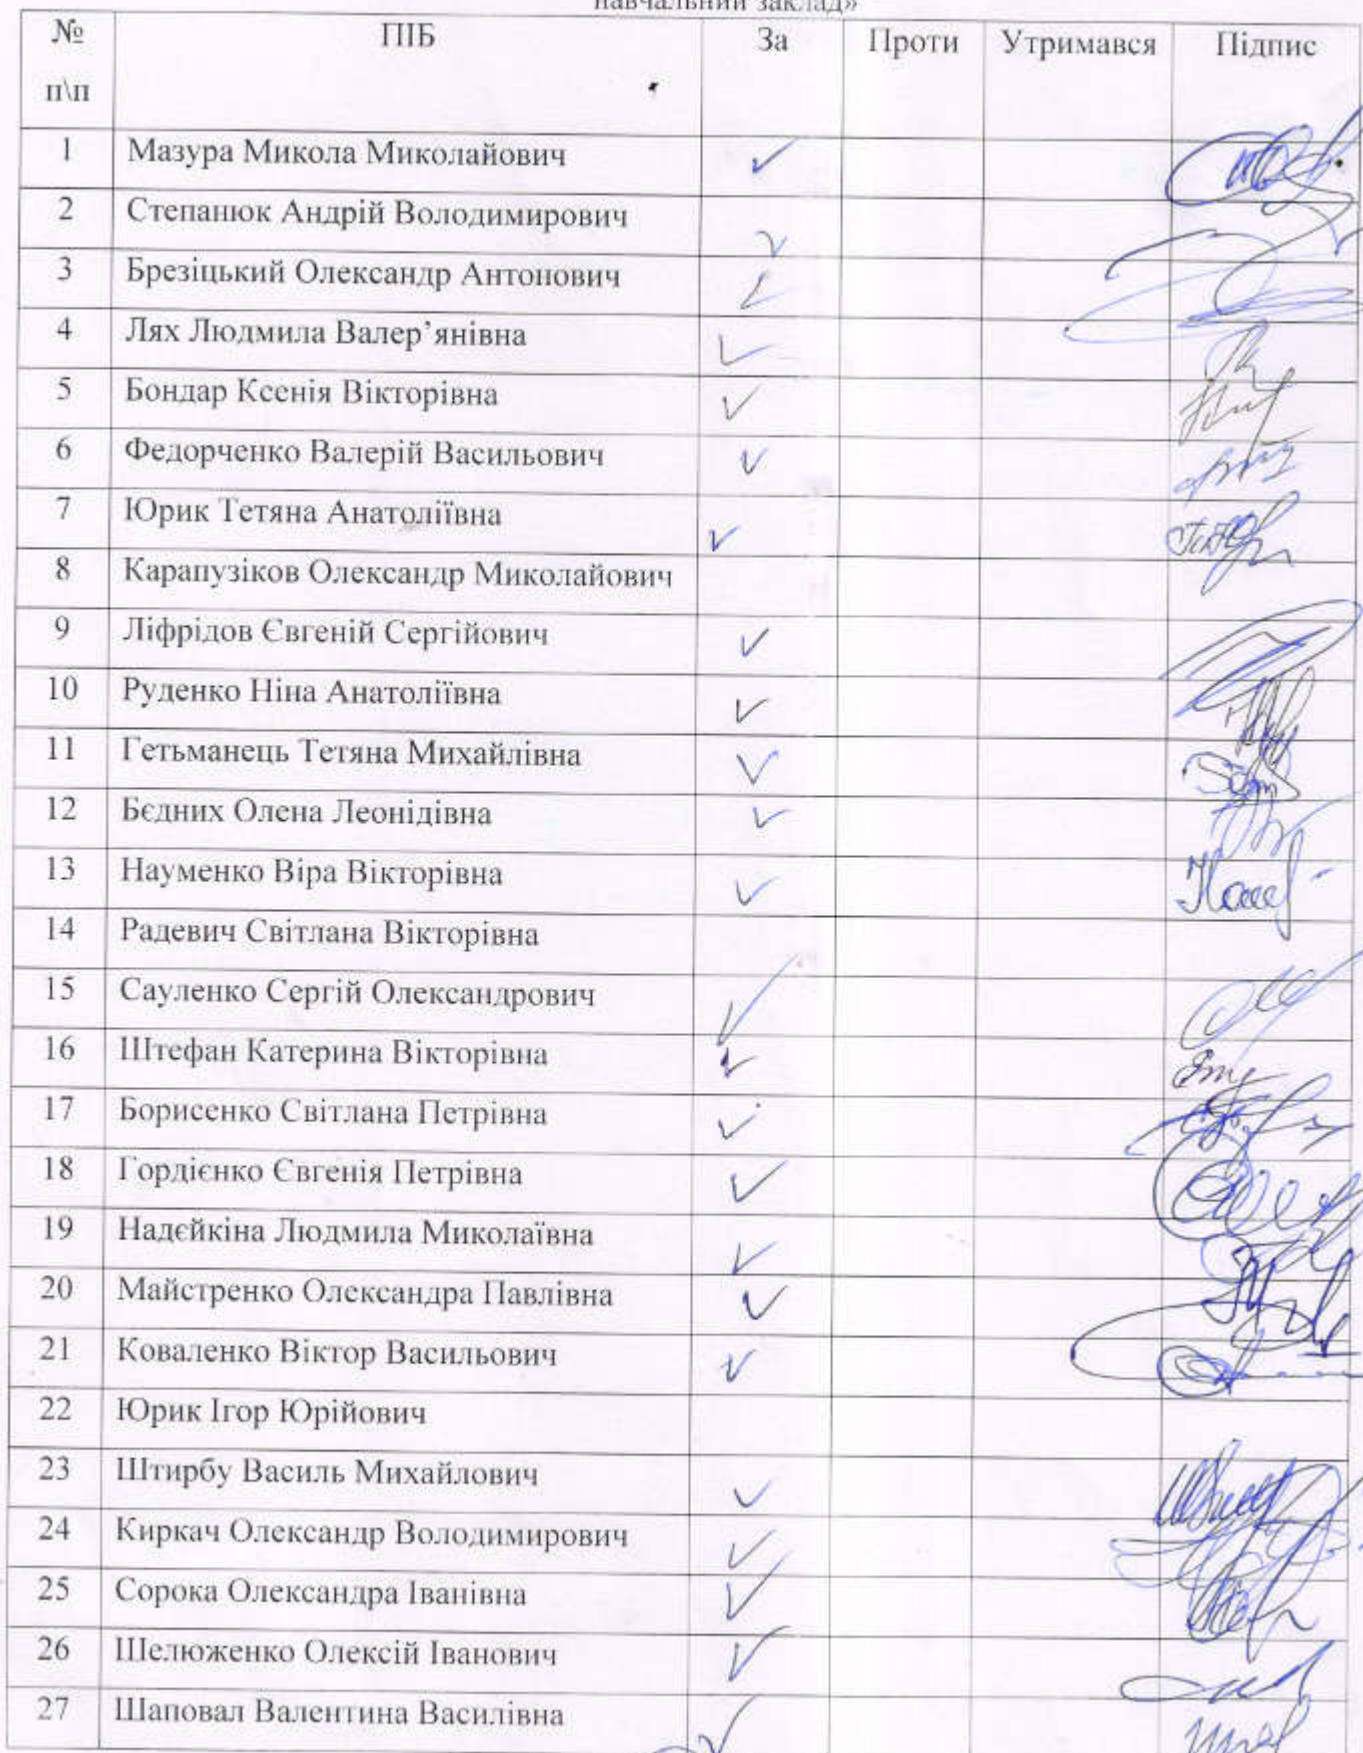 навчальний заклад»
№ п\п ПІБ За Проти Утримався Підпис
1 Мазура Микола Миколайович ✓
2 Степанюк Андрій Володимирович ✓
3 Брезіцький Олександр Антонович ✓
4 Лях Людмила Валер’янівна ✓
5 Бондар Ксенія Вікторівна ✓
6 Федорченко Валерій Васильович ✓
7 Юрик Тетяна Анатоліївна ✓
8 Карапузіков Олександр Миколайович
9 Ліфрідов Євгеній Сергійович ✓
10 Руденко Ніна Анатоліївна ✓
11 Гетьманець Тетяна Михайлівна ✓
12 Бєдних Олена Леонідівна ✓
13 Науменко Віра Вікторівна ✓
14 Радевич Світлана Вікторівна
15 Сауленко Сергій Олександрович ✓
16 Штефан Катерина Вікторівна ✓
17 Борисенко Світлана Петрівна ✓
18 Гордієнко Євгенія Петрівна ✓
19 Надєйкіна Людмила Миколаївна ✓
20 Майстренко Олександра Павлівна ✓
21 Коваленко Віктор Васильович ✓
22 Юрик Ігор Юрійович
23 Штирбу Василь Михайлович ✓
24 Киркач Олександр Володимирович ✓
25 Сорока Олександра Іванівна ✓
26 Шелюженко Олексій Іванович ✓
27 Шаповал Валентина Василівна ✓